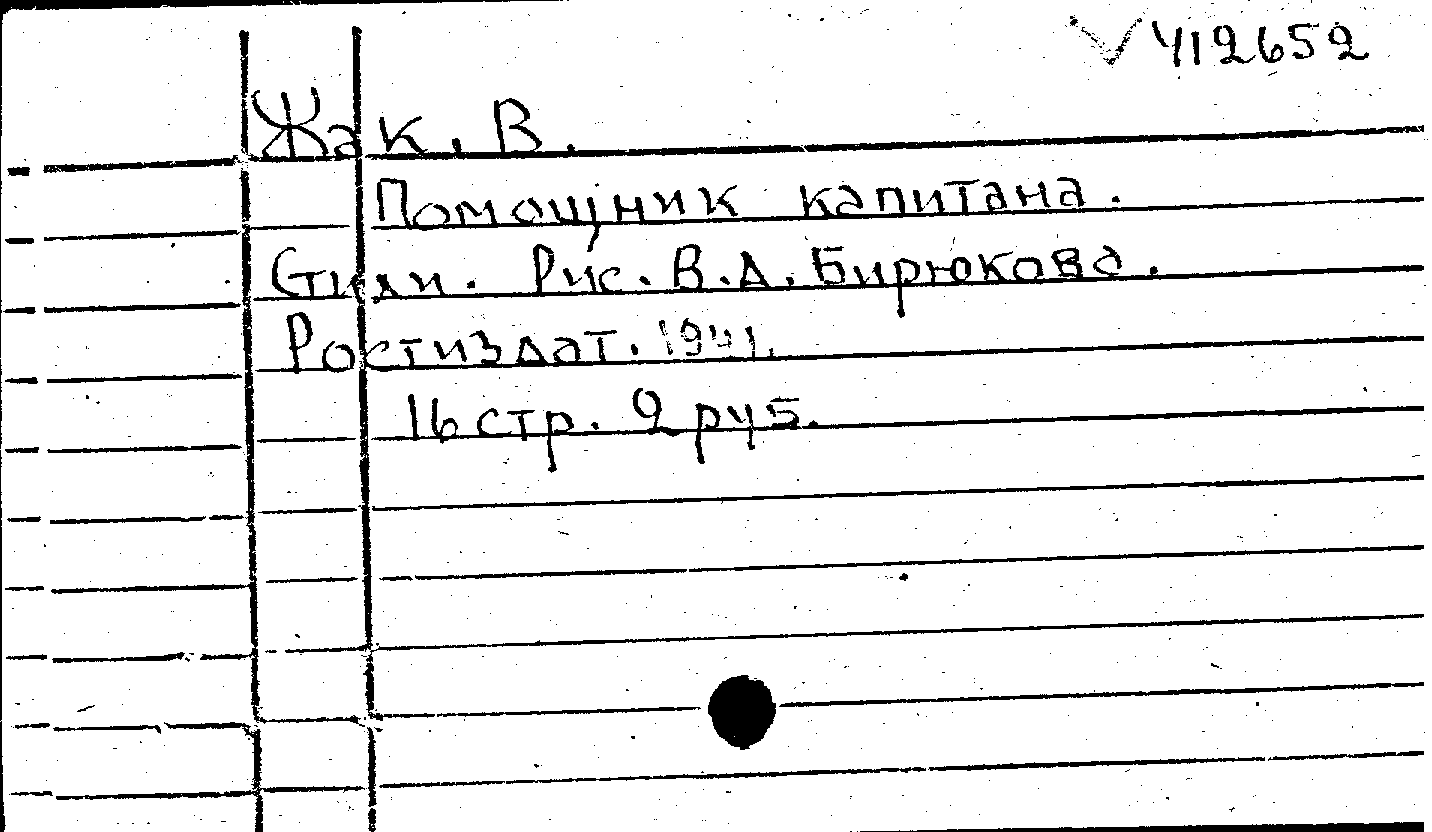 √ 412652
Жак. В.
Помощник капитана.
Стихи. Рис. В.А. Бирюкова.
Ростиздат. 1941.
16 стр. 2 руб.